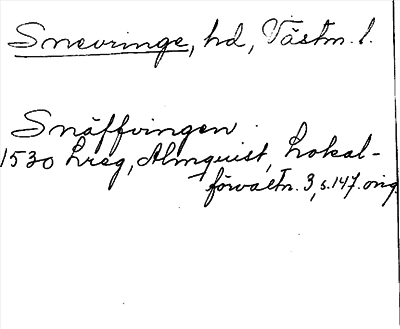 Snevringe, hd, Västm. l.
Snäffvingen
1530 Lreg, Almquist, Lokal-
förvaltn. 3, s. 147. orig.